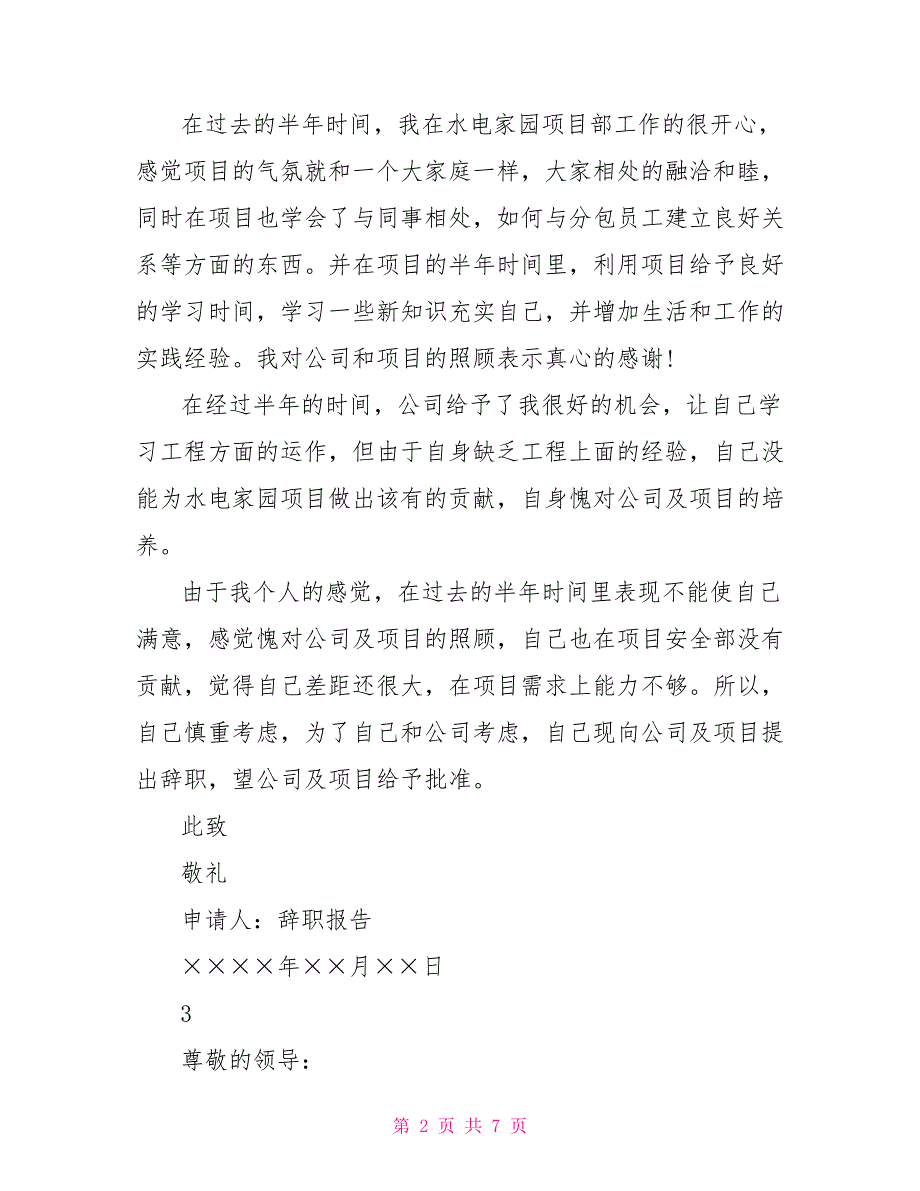 在过去的半年时间，我在水电家园项目部工作的很开心，
感觉项目的气氛就和一个大家庭一样，大家相处的融洽和睦，
同时在项目也学会了与同事相处，如何与分包员工建立良好关
系等方面的东西。并在项目的半年时间里，利用项目给予良好
的学习时间，学习一些新知识充实自己，并增加生活和工作的
实践经验。我对公司和项目的照顾表示真心的感谢!
在经过半年的时间，公司给予了我很好的机会，让自己学
习工程方面的运作，但由于自身缺乏工程上面的经验，自己没
能为水电家园项目做出该有的贡献，自身愧对公司及项目的培
养。
由于我个人的感觉，在过去的半年时间里表现不能使自己
满意，感觉愧对公司及项目的照顾，自己也在项目安全部没有
贡献，觉得自己差距还很大，在项目需求上能力不够。所以，
自己慎重考虑，为了自己和公司考虑，自己现向公司及项目提
出辞职，望公司及项目给予批准。
此致
敬礼
申请人：辞职报告
××××年××月××日
3
尊敬的领导：
第 2 页 共 7 页